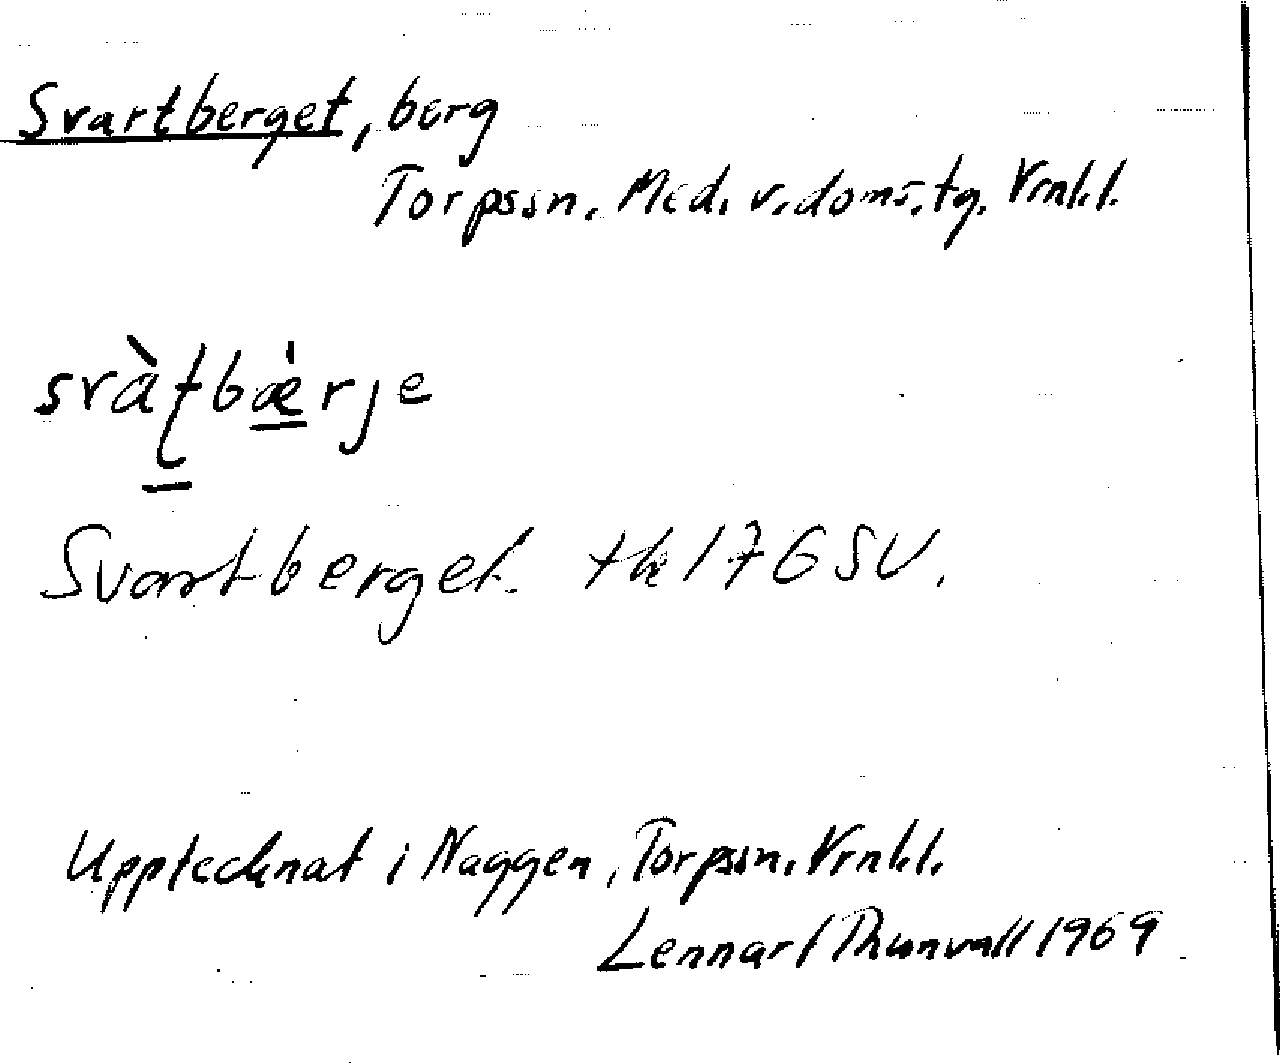 Svartberget, berg
Torpssn. Med. v. doms. tg. Vrnl. l.
svàƭbæ̀rje
Svartberget. tk 17 G SV.
Upptecknat i Naggen, Torpssn. Vrnl. l.
Lennart Thunvall 1969